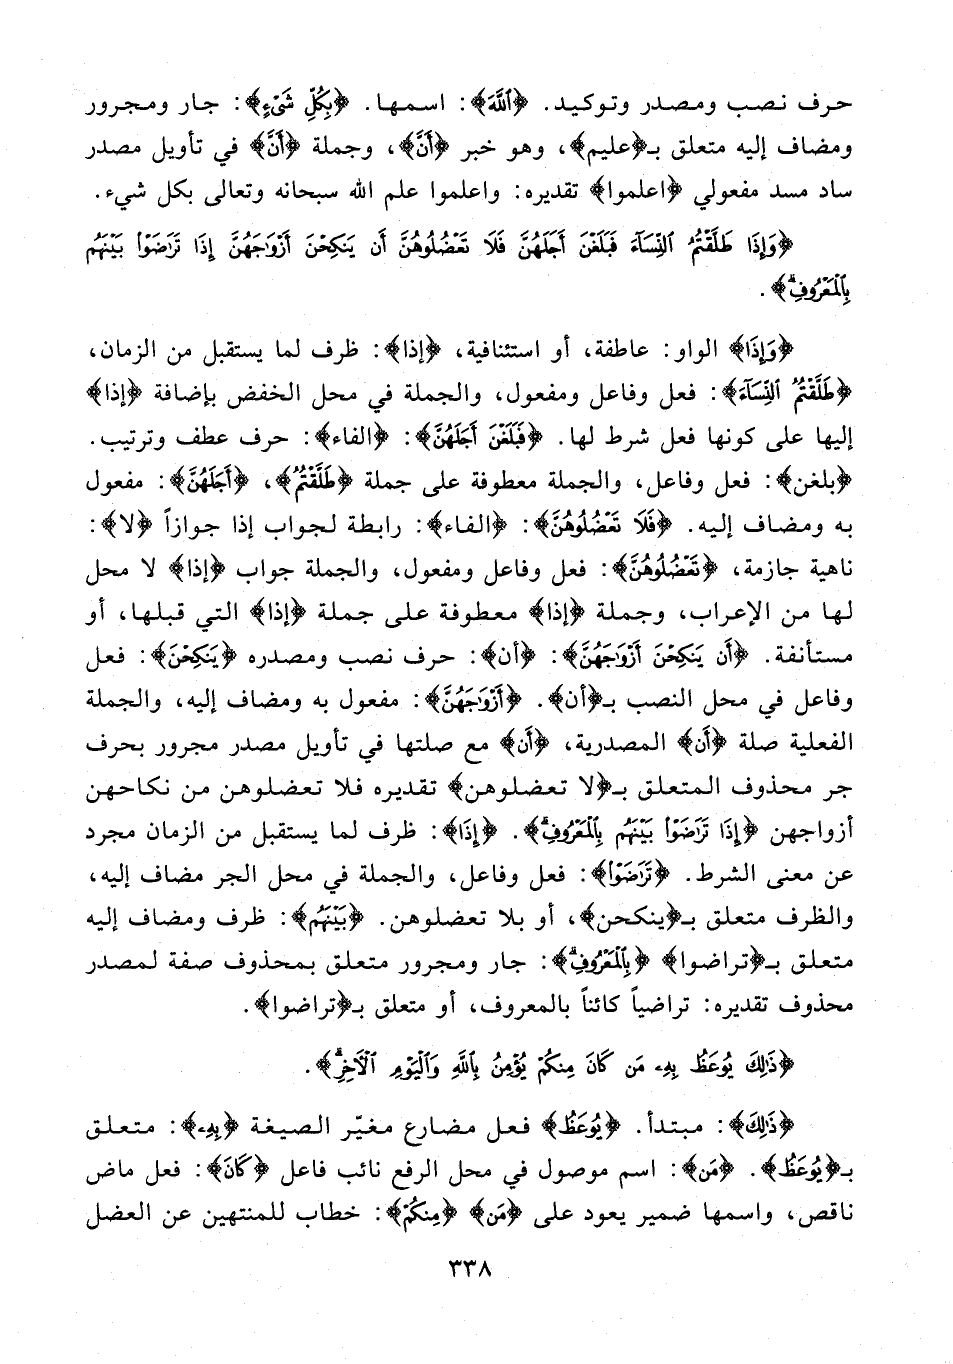 حرف نصب ومصدر وتوكيد. ﴿ٱللَّهَ﴾: اسمها. ﴿بِكُلِّ شَىْءٍ﴾: جار ومجرور
ومضاف إليه متعلق بـ﴿عليم﴾، وهو خبر ﴿أَنَّ﴾، وجملة ﴿أَنَّ﴾ في تأويل مصدر
ساد مسد مفعولي ﴿اعلموا﴾ تقديره: واعلموا علم الله سبحانه وتعالى بكل شيء.
﴿وَإِذَا طَلَّقْتُمُ ٱلنِّسَآءَ فَبَلَغْنَ أَجَلَهُنَّ فَلَا تَعْضُلُوهُنَّ أَن يَنكِحْنَ أَزْوَٰجَهُنَّ إِذَا تَرَٰضَوْا۟ بَيْنَهُم
بِٱلْمَعْرُوفِ ۗ﴾.
﴿وَإِذَا﴾ الواو: عاطفة، أو استئنافية، ﴿إذا﴾: ظرف لما يستقبل من الزمان،
﴿طَلَّقْتُمُ ٱلنِّسَآءَ﴾: فعل وفاعل ومفعول، والجملة في محل الخفض بإضافة ﴿إذا﴾
إليها على كونها فعل شرط لها. ﴿فَبَلَغْنَ أَجَلَهُنَّ﴾: ﴿الفاء﴾: حرف عطف وترتيب.
﴿بلغن﴾: فعل وفاعل، والجملة معطوفة على جملة ﴿طَلَّقْتُمُ﴾، ﴿أَجَلَهُنَّ﴾: مفعول
به ومضاف إليه. ﴿فَلَا تَعْضُلُوهُنَّ﴾: ﴿الفاء﴾: رابطة لجواب إذا جوازاً ﴿لا﴾:
ناهية جازمة، ﴿تَعْضُلُوهُنَّ﴾: فعل وفاعل ومفعول، والجملة جواب ﴿إذا﴾ لا محل
لها من الإعراب، وجملة ﴿إذا﴾ معطوفة على جملة ﴿إذا﴾ التي قبلها، أو
مستأنفة. ﴿أَن يَنكِحْنَ أَزْوَٰجَهُنَّ﴾: ﴿أن﴾: حرف نصب ومصدره ﴿يَنكِحْنَ﴾: فعل
وفاعل في محل النصب بـ﴿أن﴾. ﴿أَزْوَٰجَهُنَّ﴾: مفعول به ومضاف إليه، والجملة
الفعلية صلة ﴿أَن﴾ المصدرية، ﴿أَن﴾ مع صلتها في تأويل مصدر مجرور بحرف
جر محذوف المتعلق بـ﴿لا تعضلوهن﴾ تقديره فلا تعضلوهن من نكاحهن
أزواجهن ﴿إِذَا تَرَٰضَوْا۟ بَيْنَهُم بِٱلْمَعْرُوفِ ۗ﴾. ﴿إِذَا﴾: ظرف لما يستقبل من الزمان مجرد
عن معنى الشرط. ﴿تَرَٰضَوْا۟﴾: فعل وفاعل، والجملة في محل الجر مضاف إليه،
والظرف متعلق بـ﴿ينكحن﴾، أو بلا تعضلوهن. ﴿بَيْنَهُم﴾: ظرف ومضاف إليه
متعلق بـ﴿تراضوا﴾ ﴿بِٱلْمَعْرُوفِ ۗ﴾: جار ومجرور متعلق بمحذوف صفة لمصدر
محذوف تقديره: تراضياً كائناً بالمعروف، أو متعلق بـ﴿تراضوا﴾.
﴿ذَٰلِكَ يُوعَظُ بِهِۦ مَن كَانَ مِنكُمْ يُؤْمِنُ بِٱللَّهِ وَٱلْيَوْمِ ٱلْآخِرِ ۗ﴾.
﴿ذَٰلِكَ﴾: مبتدأ. ﴿يُوعَظُ﴾ فعل مضارع مغيّر الصيغة ﴿بِهِۦ﴾: متعلق
بـ﴿يُوعَظُ﴾. ﴿مَن﴾: اسم موصول في محل الرفع نائب فاعل ﴿كَانَ﴾: فعل ماض
ناقص، واسمها ضمير يعود على ﴿مَن﴾ ﴿مِنكُمْ﴾: خطاب للمنتهين عن العضل
٣٣٨